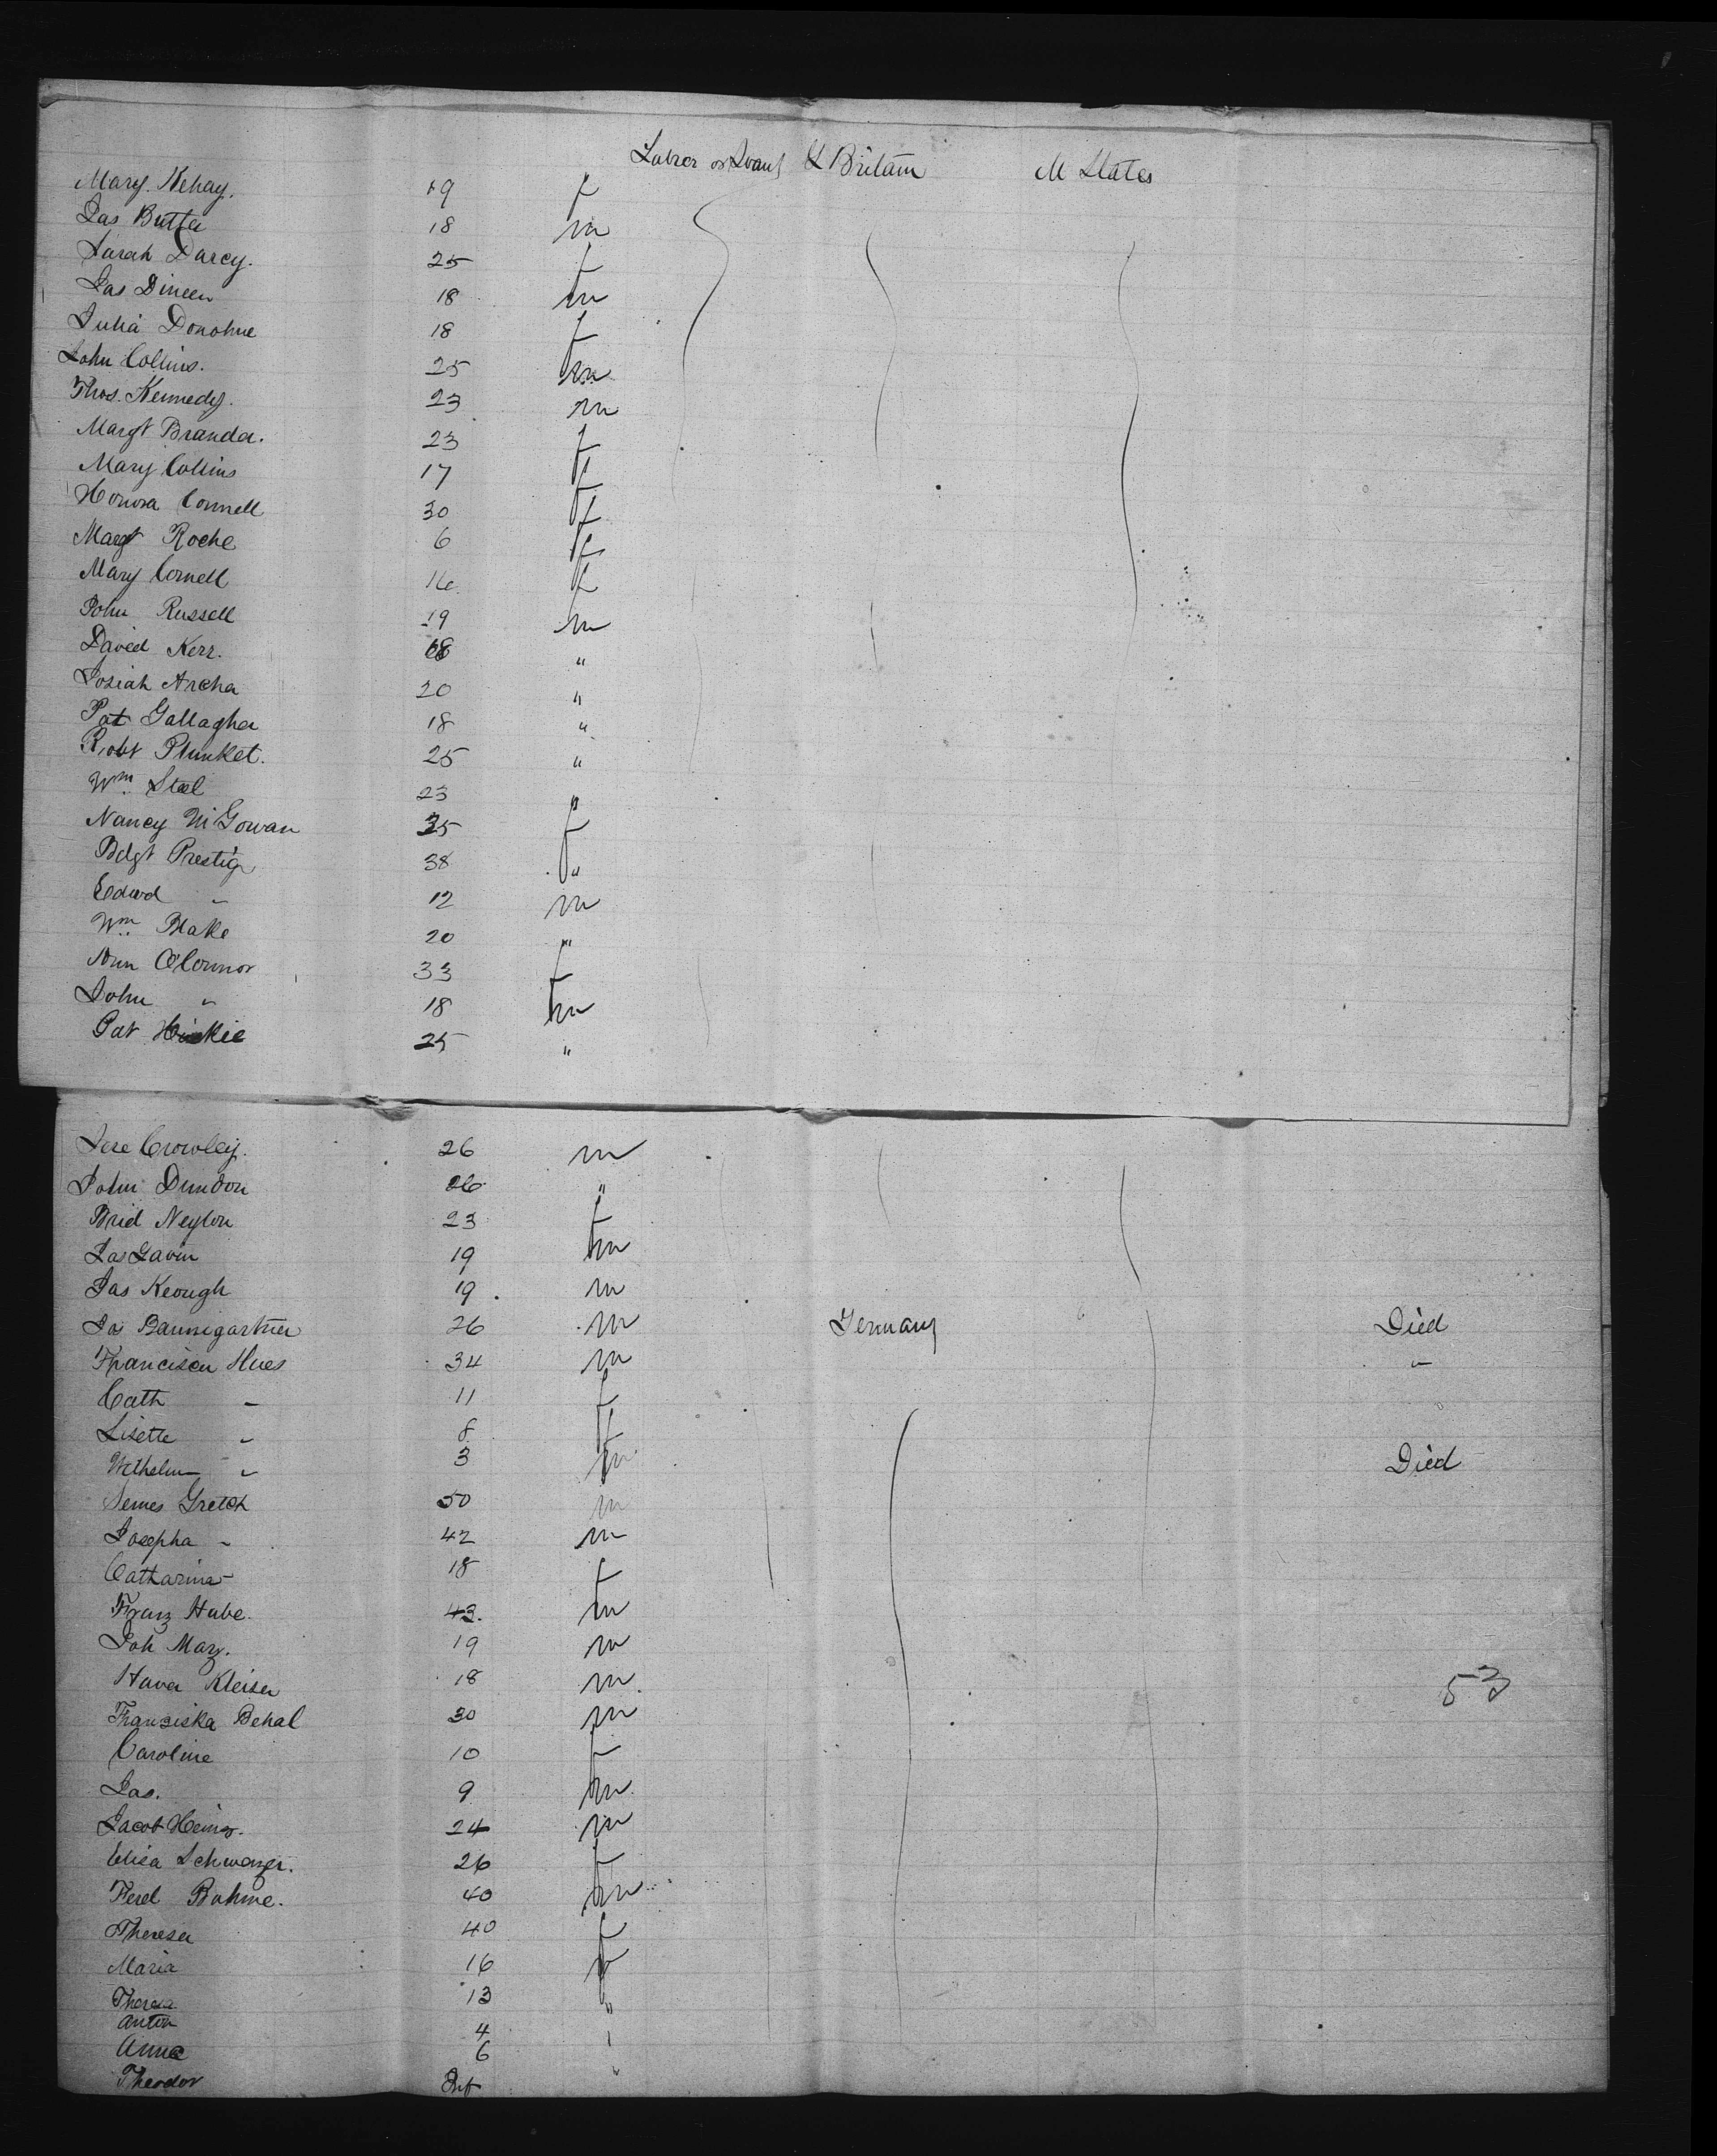 Labrer or Svant Gt Britain U States
Mary. Kehay. 19 f
Jas Butler 18 m
Sarah Darcy. 25 f
Jas Dineen 18 m
Julia Donohue 18 f
John Collins. 25 m
Thos. Kennedy. 23 m
Margt Brander. 23 f
Mary Collins 17 f
Honora Connell 30 f
Margt Roche 6 f
Mary Cornell 16 f
John Russell 19 m
David Kerr. 18 "
Josiah Archer 20 "
Pat Gallagher 18 "
Robt Plunket. 25 "
Wm. Steel 23 "
Nancy McGowan 35 f
Bdgt Prestige 38 "
Edwd " 12 m
Wm. Blake 20 "
Ann O'Connor 33 f
John " 18 m
Pat Hickie 25 "
Jere Crowley. 26 m
John Dundon 26 "
Brid Neylon 23 f
Jas Gavin 19 m
Jas Keough 19 m
Jos Baumgartner 26 m Germany Died
Francisca Hues 34 m "
Cath " 11 f
Lisette " 8 f
Wilhelm " 3 m Died
Gretch 50 m
Josepha " 42 m
Catharina " 18 f
Franz Hube. 43. m
Joh Marz. 19 m
Kleiser 18 m. 53
Franziska Behal 30 m
Caroline 10 f
Jas. 9 m
Jacob Heinz. 24 m
Elisa Schwarzer. 26 f
Ferd Bohme. 40 m
Theresa 40 f
Maria 16 f
Theresa 13 "
Anton 4
Anna 6 "
Theodor Inf